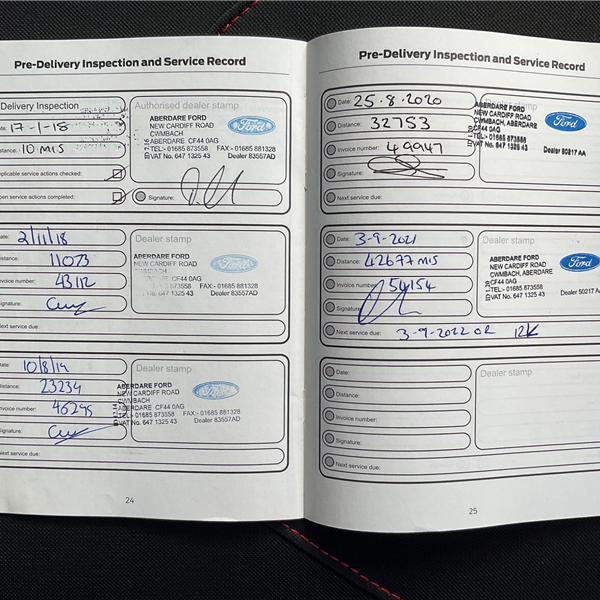 Pre-Delivery Inspection and Service Record
Delivery Inspection
Authorised dealer stamp
17-1-18
10 MIS
plicable service actions checked:
pen service actions completed:
Signature:
ABERDARE FORD
NEW CARDIFF ROAD
CWMBACH
ABERDARE CF44 0AG
TEL:- 01685 873558 FAX:- 01685 881328
VAT No. 647 1325 43 Dealer 83557AD
Ford
Date: 2/11/18
Distance: 11073
Invoice number: 43112
Signature:
Next service due:
Dealer stamp
ABERDARE FORD
NEW CARDIFF ROAD
CF44 0AG
873558 FAX:- 01685 881328
No. 647 1325 43 Dealer 83557AD
Ford
Date: 10/8/19
Distance: 23234
Invoice number: 46295
Signature:
Next service due:
Dealer stamp
ABERDARE FORD
NEW CARDIFF ROAD
CWMBACH
ABERDARE CF44 0AG
TEL:- 01685 873558 FAX:- 01685 881328
VAT No. 647 1325 43 Dealer 83557AD
Ford
24
Pre-Delivery Inspection and Service Record
Date: 25.8.2020
Distance: 32753
Invoice number: 49947
Signature:
Next service due:
ABERDARE FORD
NEW CARDIFF ROAD
CWMBACH, ABERDARE
CF44 0AG
TEL:- 01685 873558
VAT No. 647 1325 43 Dealer 50217 AA
Ford
Date: 3-9-2021
Distance: 42677 MIS
Invoice number: 54154
Signature:
Next service due: 3-9-2022 OR 12K
Dealer stamp
ABERDARE FORD
NEW CARDIFF ROAD
CWMBACH, ABERDARE
CF44 0AG
TEL:- 01685 873558
VAT No. 647 1325 43 Dealer 50217 AA
Ford
Date:
Distance:
Invoice number:
Signature:
Next service due:
Dealer stamp
25